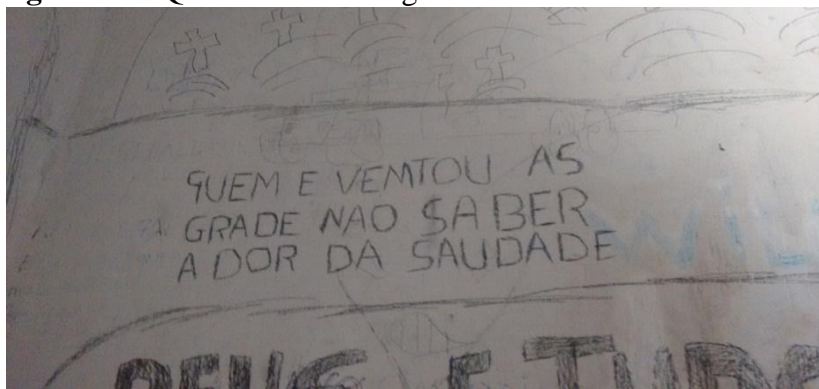 QUEM E VEMTOU AS
GRADE NAO SABER
A DOR DA SAUDADE
DEUS E TUDO